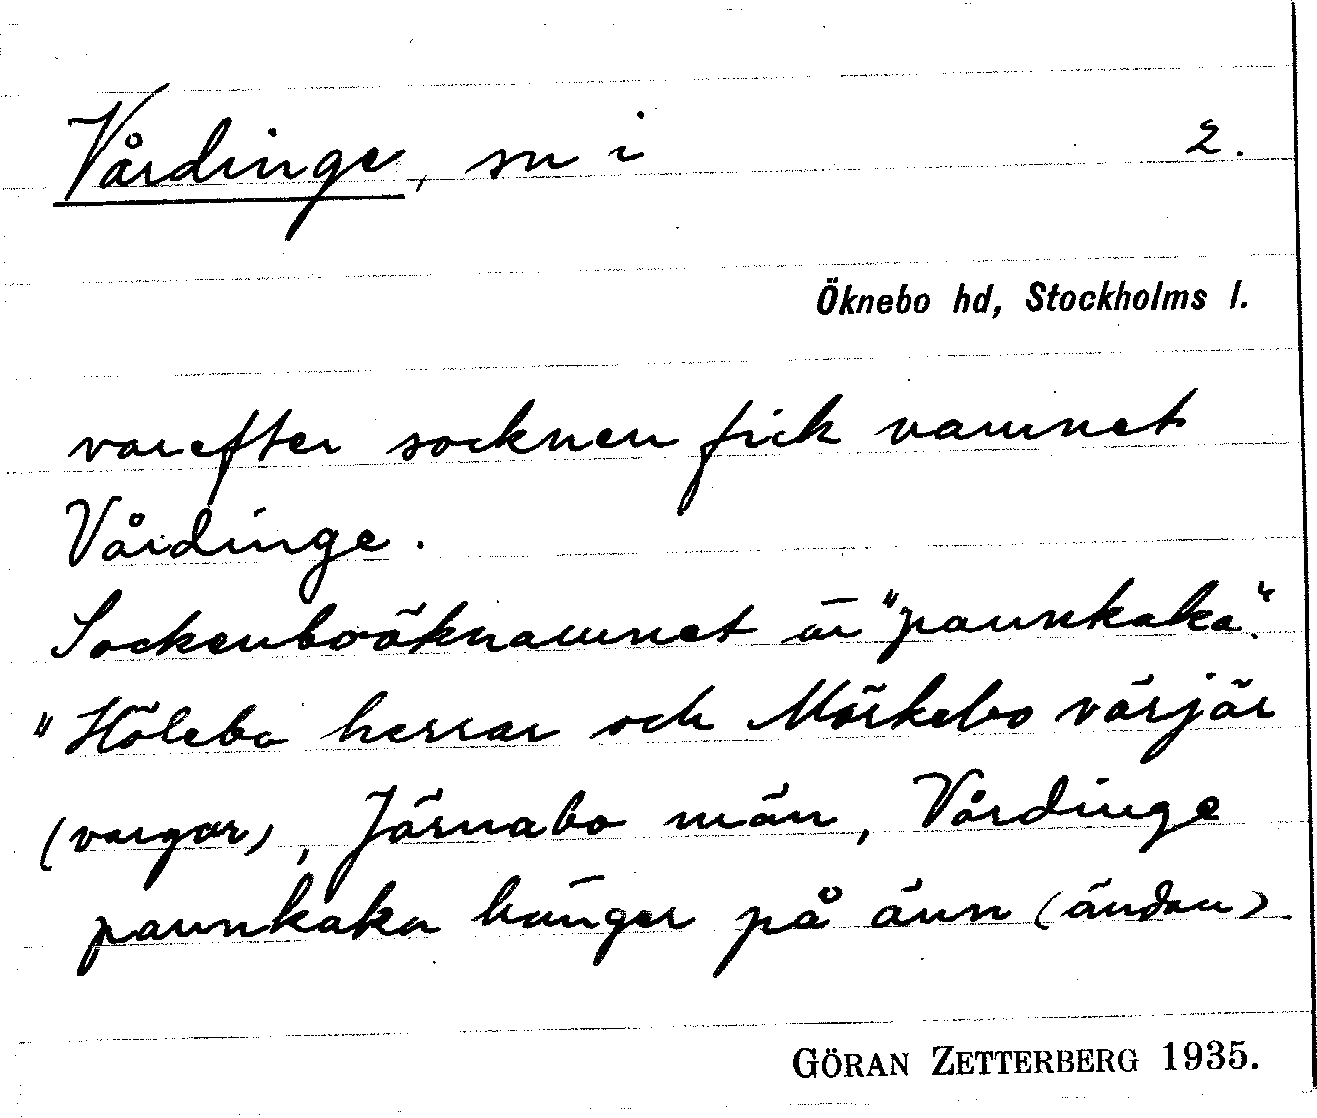 Vårdinge, sn i 2.
Öknebo hd, Stockholms l.
varefter socknen fick namnet
Vårdinge.
Sockenboöknamnet är "pannkaka".
"Hölebo herrar och Mörkebo värjär
(vargar), Järnabo män, Vårdinge
pannkaka hänger på änn (ändan)
GÖRAN ZETTERBERG 1935.